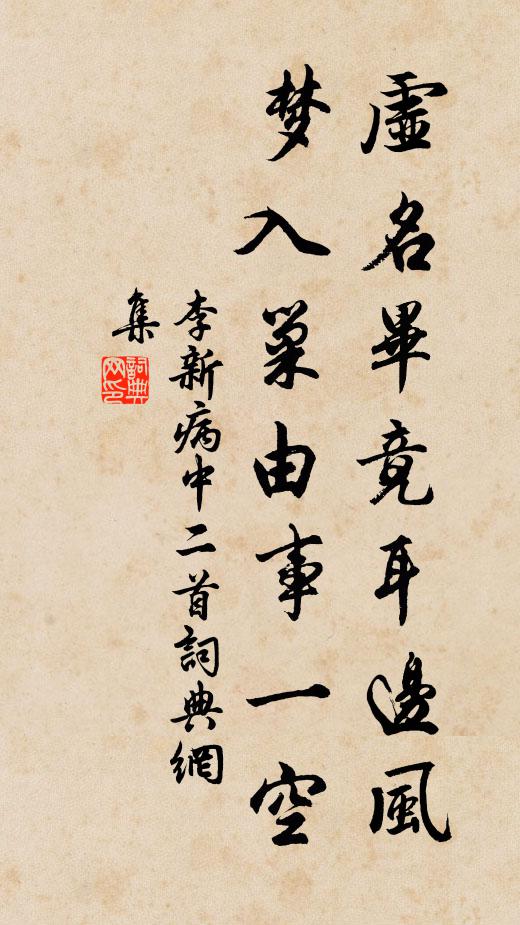 虛名畢竟耳邊風
梦入巢由事一空
李新病中二首詞典網
集
詞典
网印